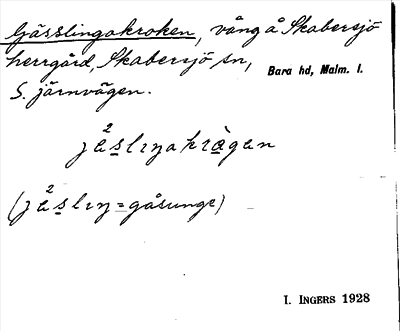 Gässlingakroken, vång å Skabersjö
herrgård, Skabersjö sn,
Bara hd, Malm. l.
S. järnvägen.
jä²slıŋakrågen
(jä²slıŋ = gåsunge)
I. INGERS 1928